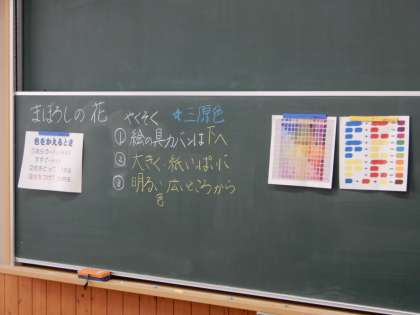 まぼろしの花
やくそく ★三原色
① 絵の具カバンは下へ
② 大きく・紙いっぱいに
③ 明るい 広いところから
き
色をかえるとき